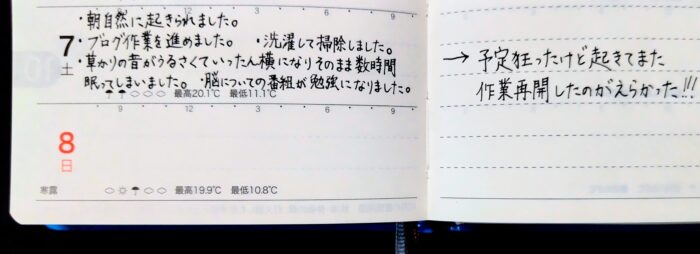 ・朝自然に起きられました。
9 12 3 6 9
7
土
・ブログ作業を進めました。 ・洗濯して掃除しました。
・草かりの音がうるさくていったん横になりそのまま数時間
眠ってしまいました。・脳についての番組が勉強になりました。
最高20.1℃ 最低11.1℃
9 12 3 6 9
8
日
寒露
最高19.9℃ 最低10.8℃
→ 予定狂ったけど起きてまた
作業再開したのがえらかった!!!